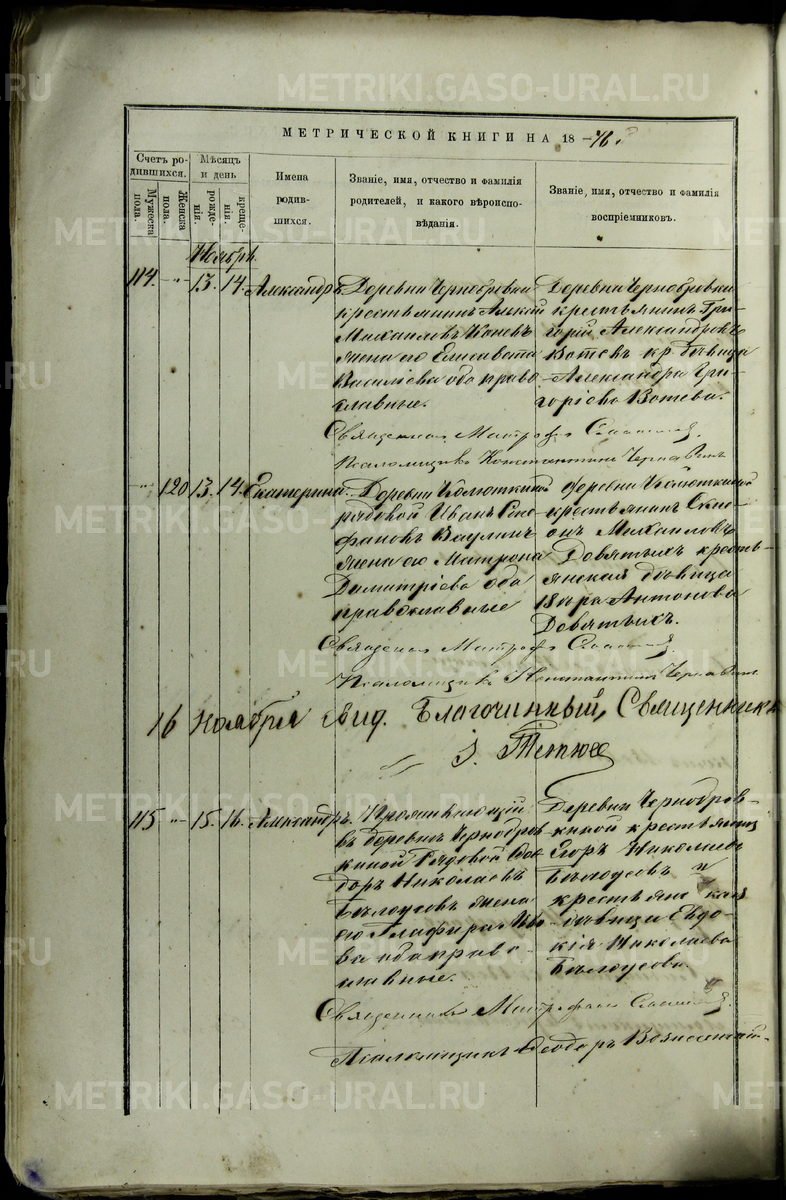 МЕТРИЧЕСКОЙ КНИГИ НА 1876 г.
Счетъ родившихся.
Мужеска пола.
Женска пола.
Мѣсяцъ и день
рожденія.
крещенія.
Имена родившихся.
Званіе, имя, отчество и фамилія родителей, и какого вѣроисповѣданія.
Званіе, имя, отчество и фамилія воспріемниковъ.
Ноябрь
114. -"- 13. 14. Александръ.
Деревни Чернобровки
крестьянинъ
Михаиловъ Коневъ
жена его Елисавета
Василіева оба право
славные.
Деревни Чернобровки
крестьянинъ Гри-
горій Александровъ
Вотевъ кр. дѣвица
Александра Гри-
горіева Вотева.
Священникъ Митроф
Псаломщикъ Константинъ
-"- 120 13. 14. Екатерина.
Деревни
рядовой Иванъ Сте-
фановъ Ваулинъ
жена его Матрона
Димитріева оба
православные
деревни
крестьянинъ
Михаиловъ
Девятыхъ кресть-
янская дѣвица
Антонова
Девятыхъ.
Священникъ Митроф
Псаломщикъ Константинъ
16 Ноября Вид. Благочинный, Священникъ
115 -"- 15. 16. Александръ.
Проживающій
въ деревнѣ Чернобров
киной Рядовой Ѳео-
доръ Николаевъ
Бѣлоусовъ жена
его Глафира
ва оба право-
славные.
Деревни Чернобров-
киной крестьянинъ
Егоръ Николаевъ
Бѣлоусовъ и
крестьянская
дѣвица Евдо-
кія Николаева
Бѣлоусова.
Священникъ Митрофанъ
Псаломщикъ Ѳеодоръ Вознесенскій.
METRIKI.GASO-URAL.RU